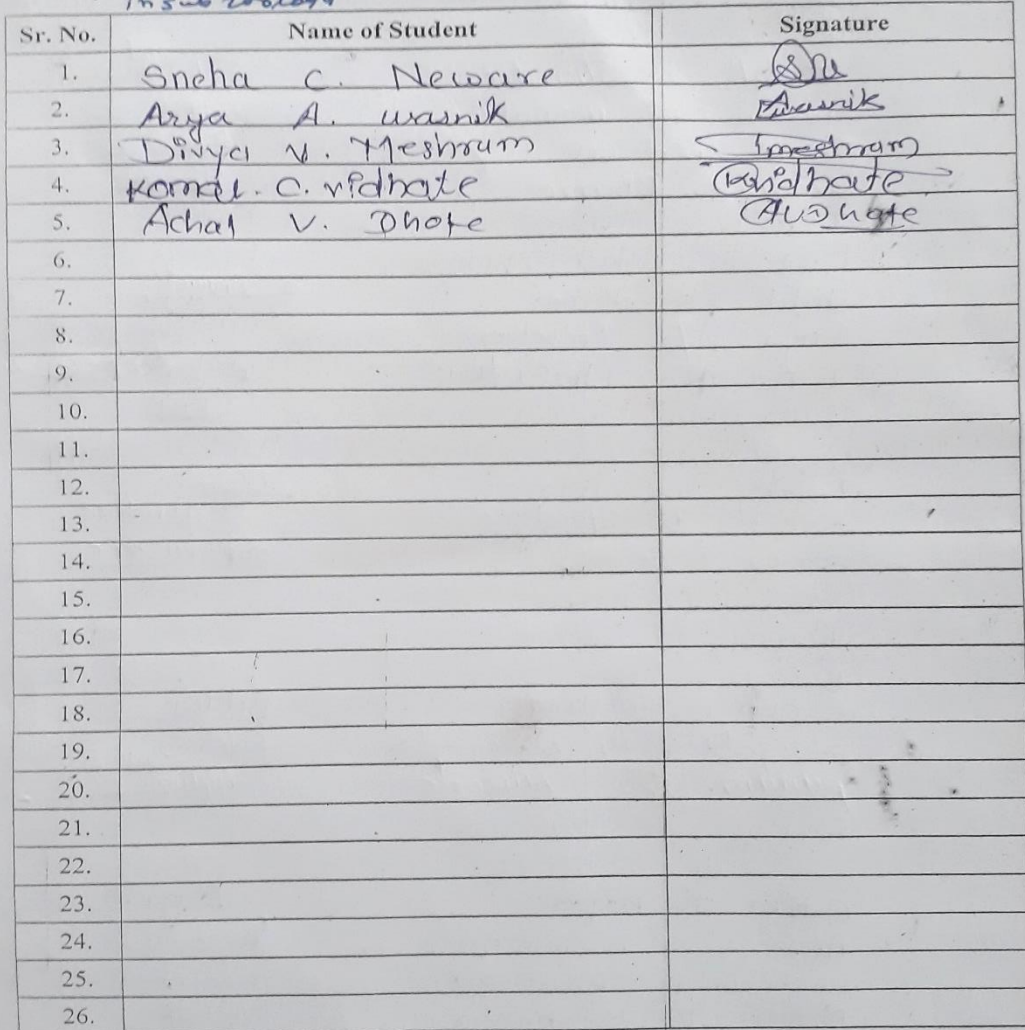 in sub zoology
Sr. No. Name of Student Signature
1. Sneha C. Neware
2. Arya A. wasnik Awasnik
3. Divya V. Meshram Dmeshram
4. Komal. C. vidhate Kvidhate
5. Achal V. Dhote AVDhote
6.
7.
8.
9.
10.
11.
12.
13.
14.
15.
16.
17.
18.
19.
20.
21.
22.
23.
24.
25.
26.